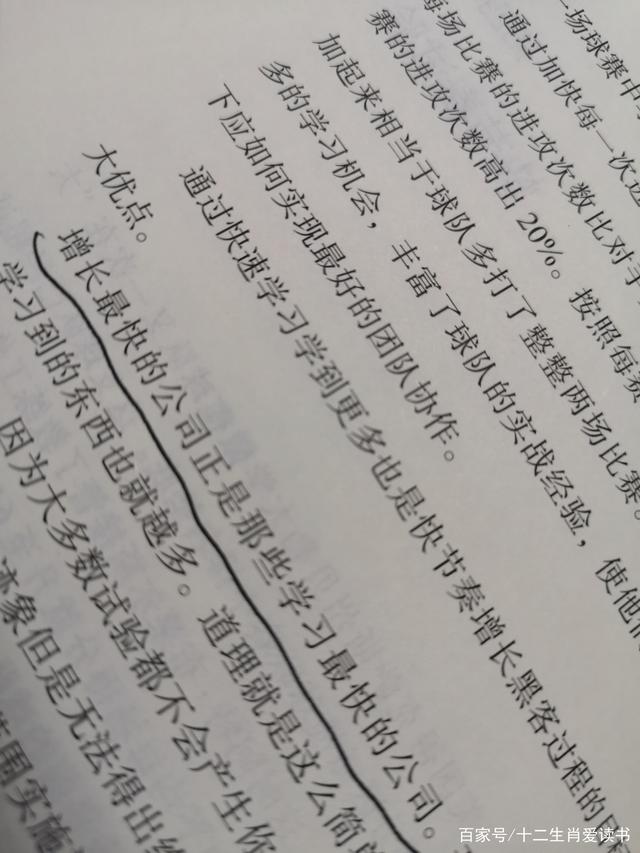 一场球赛中
通过加快每一次进
每场比赛的进攻次数比对手
赛的进攻次数高出 20%。按照每赛
加起来相当于球队多打了整整两场比赛。
多的学习机会，丰富了球队的实战经验，使他们
下应如何实现最好的团队协作。
通过快速学习学到更多也是快节奏增长黑客过程的
大优点。
增长最快的公司正是那些学习最快的公司。
学习到的东西也就越多。道理就是这么简单
因为大多数试验都不会产生你
迹象但是无法得出结
范围实施
百家号/十二生肖爱读书